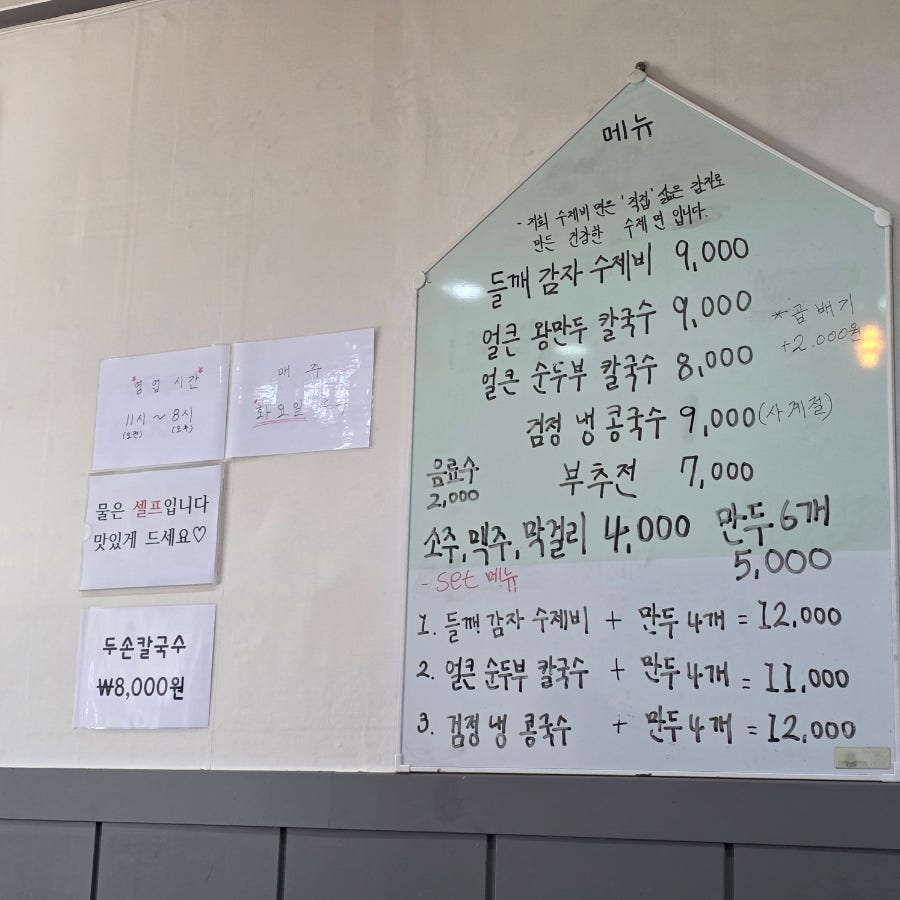 *영업 시간*
11시 ~ 8시
(오전) (오후)
매주
화요일
물은 셀프입니다
맛있게 드세요♡
두손칼국수
₩8,000원
메뉴
- 저희 수제비 면은 '직접' 삶은 감자로
만든 건강한 수제 면 입니다.
들깨 감자 수제비 9,000
얼큰 왕만두 칼국수 9,000
얼큰 순두부 칼국수 8,000
*곱배기
+2.000원
검정 냉 콩국수 9,000(사계절)
음료수
2,000
부추전 7,000
소주,맥주,막걸리 4,000
만두 6개
5,000
- set 메뉴
1. 들깨 감자 수제비 + 만두 4개 = 12,000
2. 얼큰 순두부 칼국수 + 만두 4개 = 11,000
3. 검정 냉 콩국수 + 만두 4개 = 12,000